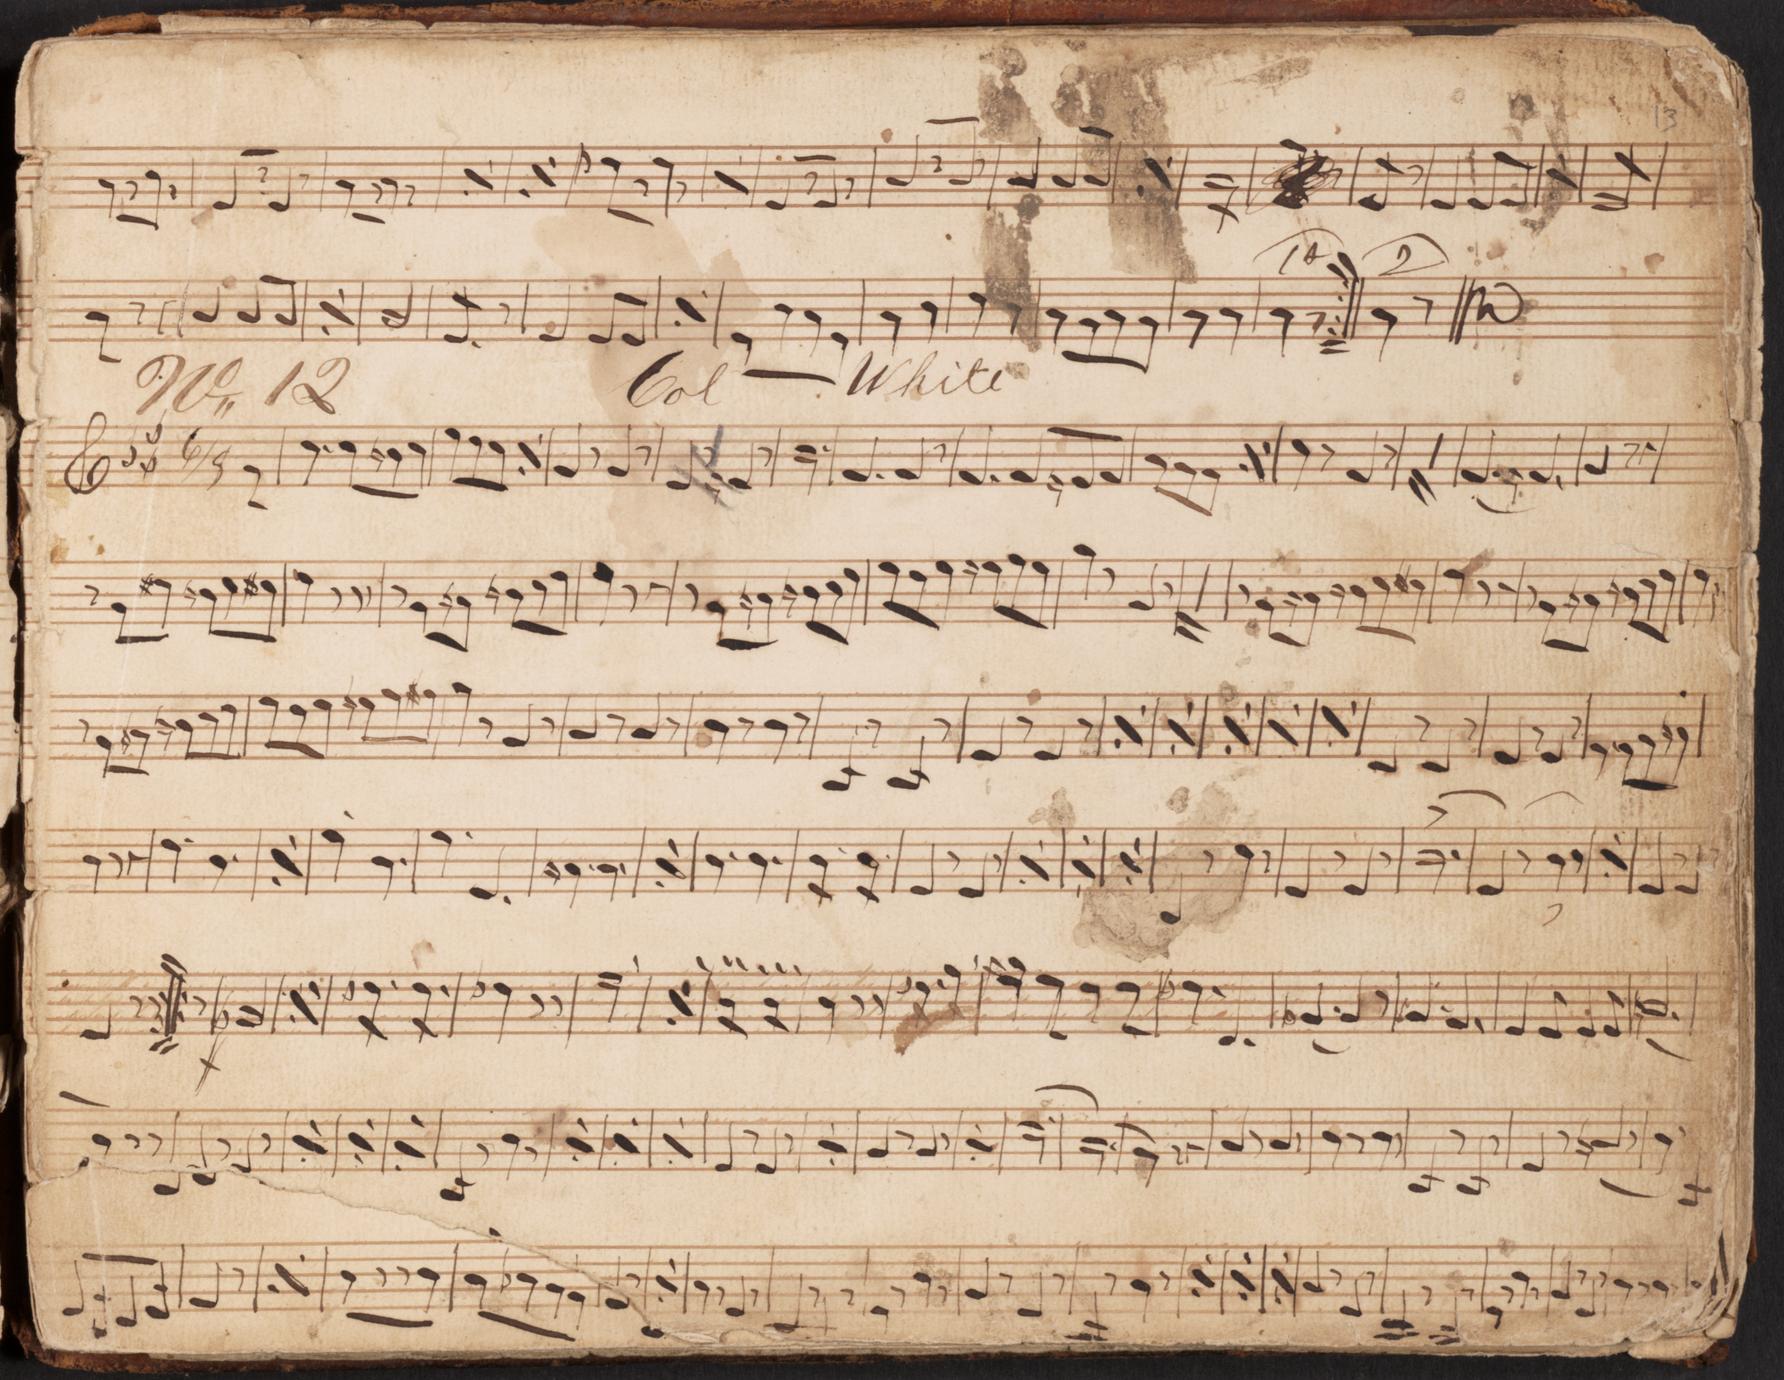 13
1 2
No. 12 Col White
6/8